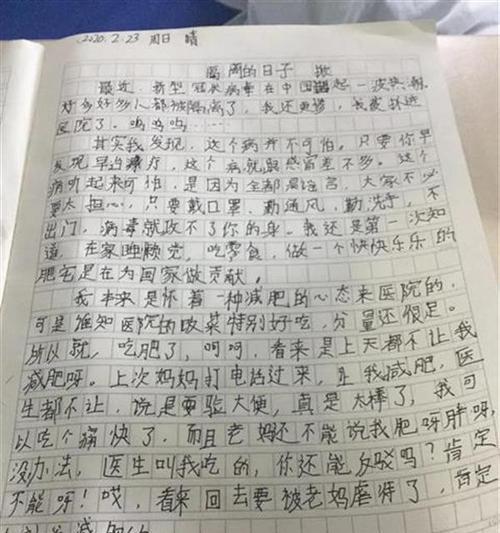 2020.2.23 周日 晴
隔离的日子
最近，新型冠状病毒在中国掀起一波热潮，
好多好多人都被隔离了，我还更惨，我被抓进
医院了。呜呜呜……
其实我发现，这个病并不可怕。只要你早
发现早治疗，这个病就跟感冒差不多。这个
病听起来可怕，是因为全都是谣言，大家不必
要太担心，只要戴口罩、勤通风、勤洗手，不
出门，病毒就改不了你的身。我还是第一次知
道，在家睡睡觉，吃零食，做一个快快乐乐的
肥宅是在为国家做贡献。
我本来是怀着一种减肥的心态来医院的，
可是谁知医院的饭菜特别好吃，分量还很足。
所以就，吃肥了，呵呵，看来是上天都不让我
减肥呀。上次妈妈打电话过来，让我减肥，医
生都不让，说是要验大便，真是太棒了，我可
以吃个痛快了，而且老妈还不能说我肥呀胖呀，
没办法，医生叫我吃的，你还能反驳吗？肯定
不能呀！哎，看来回去要被老妈虐待了，肯定